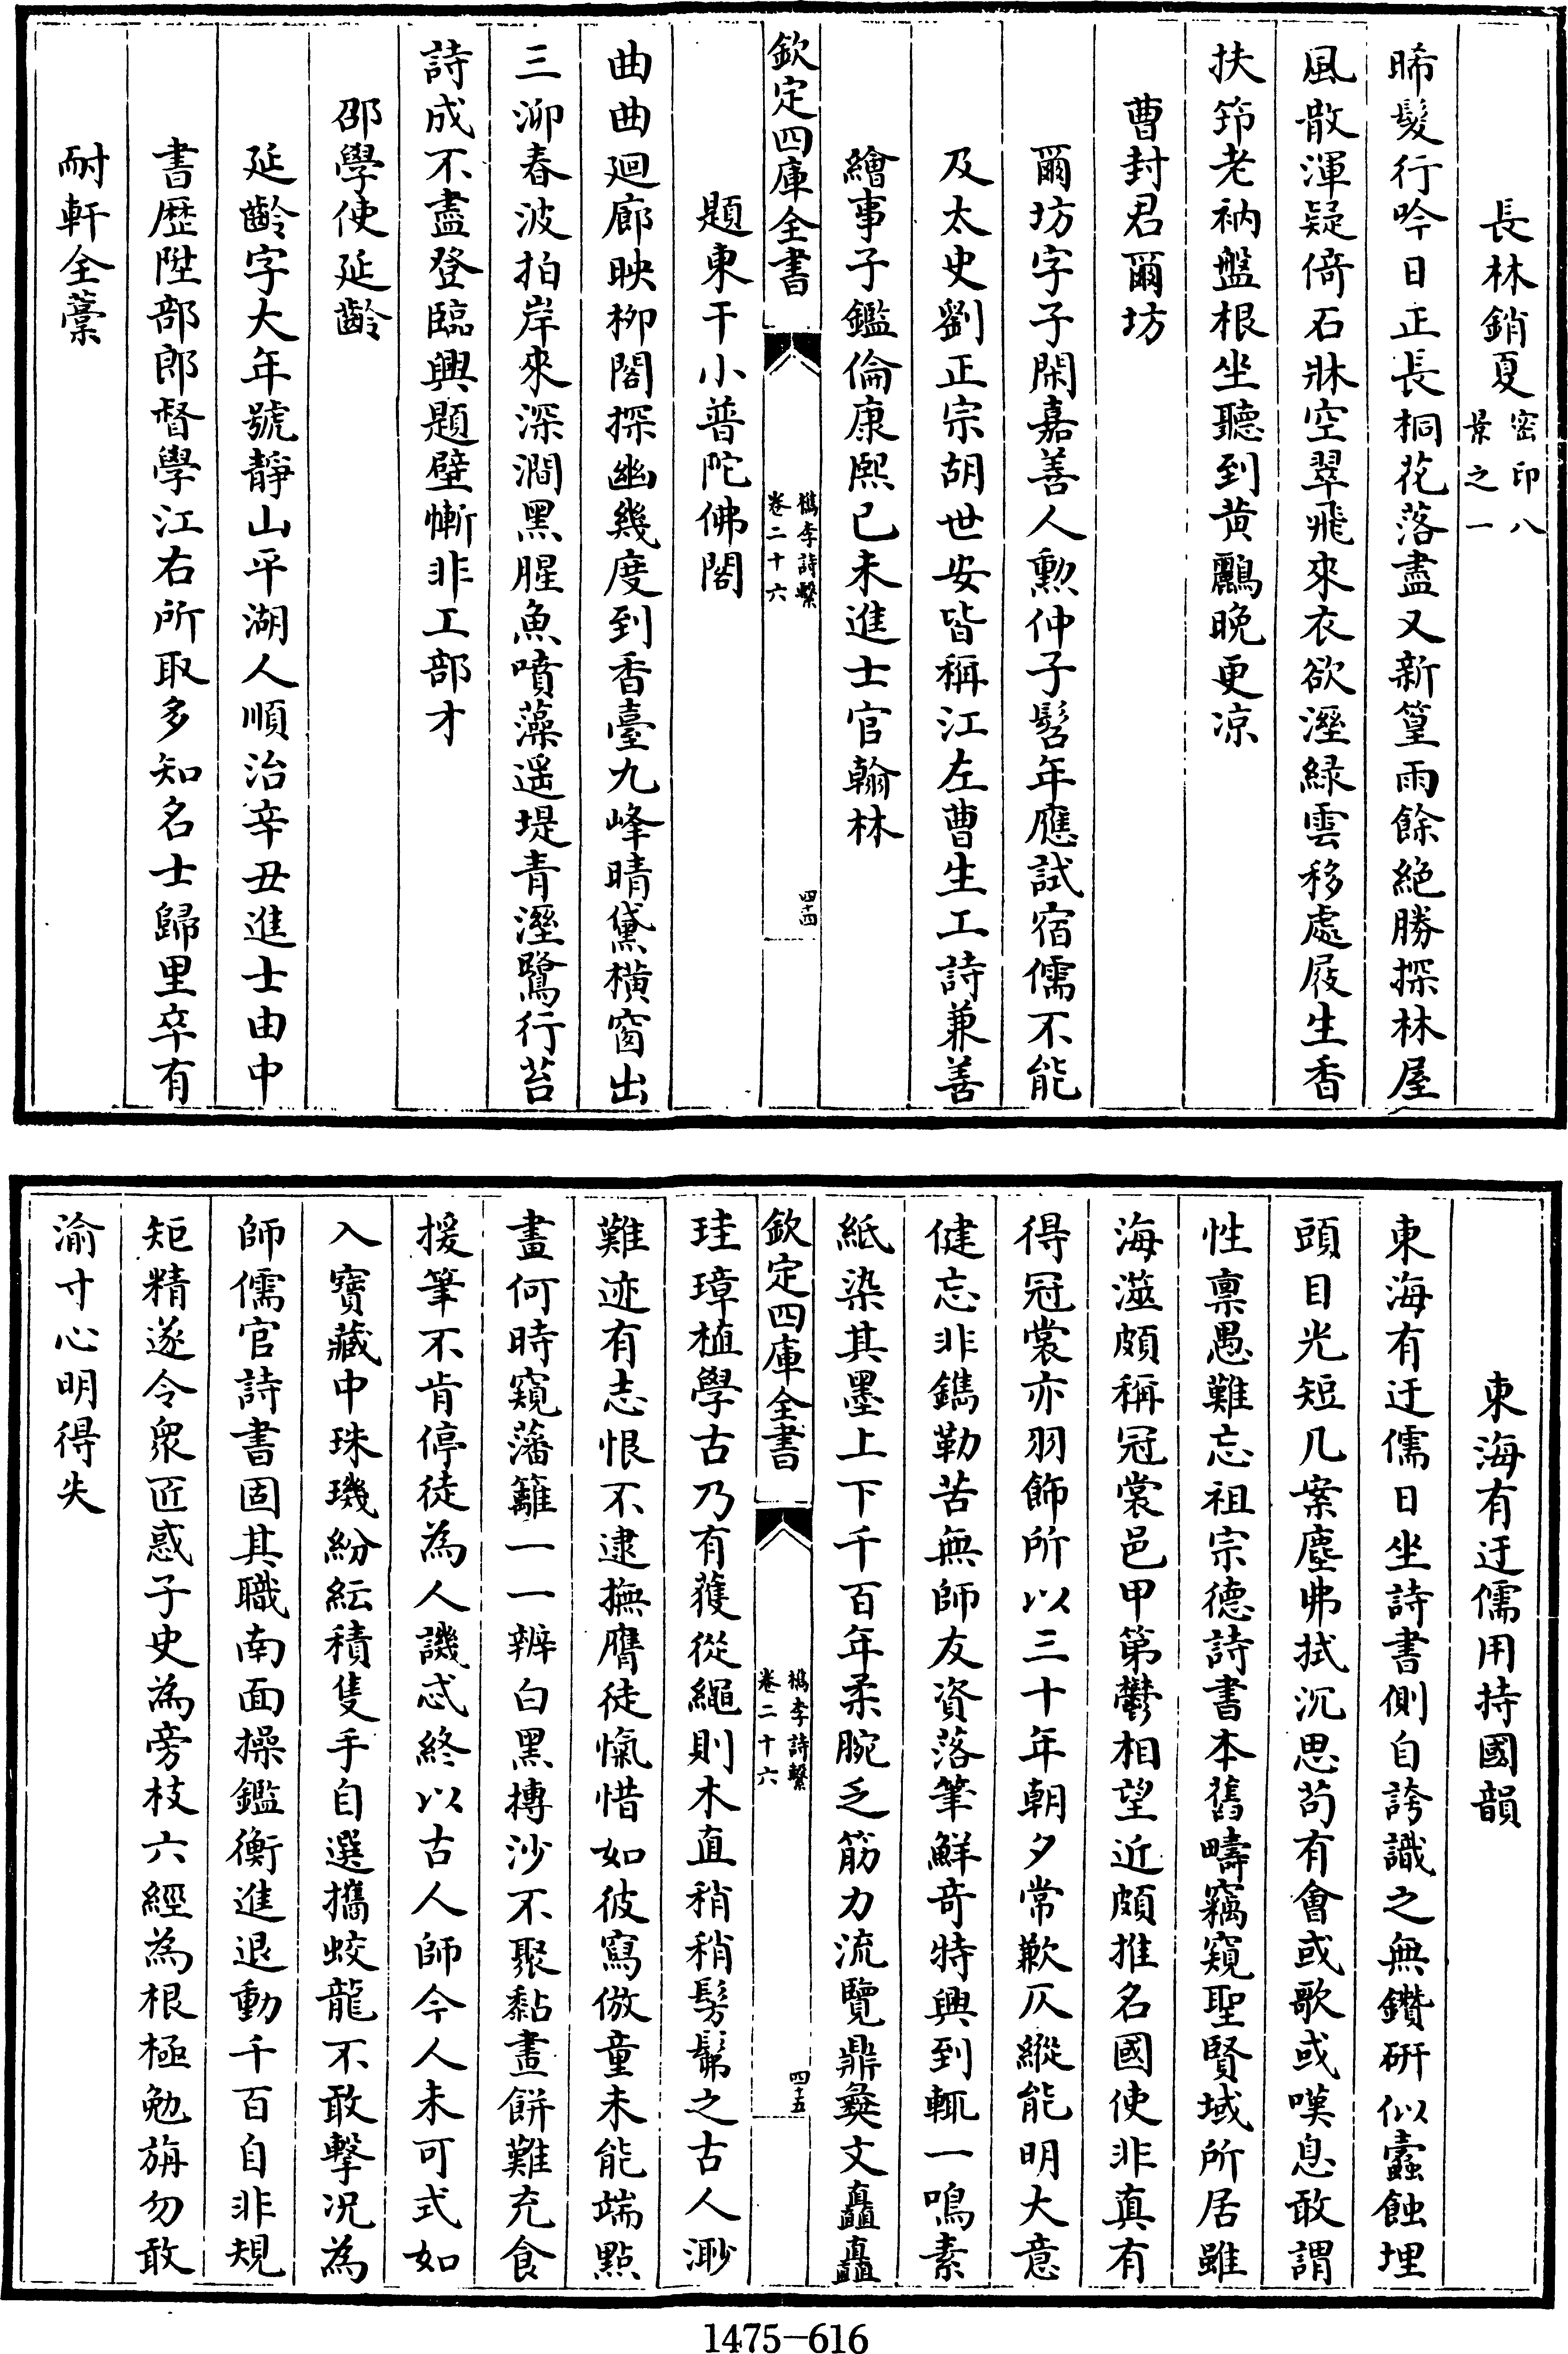 長林銷夏密印八
景之一
晞髮行吟日正長桐花落盡又新篁雨餘絶勝探林屋
風散渾疑倚石牀空翠飛來衣欲溼緑雲移處屐生香
扶筇老衲盤根坐聽到黄鸝晚更凉
曹封君爾坊
爾坊字子閑嘉善人勲仲子髫年應試宿儒不能
及太史劉正宗胡世安皆稱江左曹生工詩兼善
繪事子鑑倫康熙己未進士官翰林
欽定四庫全書
檇李詩繫
卷二十六
四十四
題東干小普陀佛閣
曲曲廻廊映栁閣探幽幾度到香臺九峰晴黛横窗出
三泖春波拍岸來深澗黑腥魚噴藻遥堤青溼鷺行苔
詩成不盡登臨興題壁慚非工部才
邵學使延齡
延齡字大年號靜山平湖人順治辛丑進士由中
書歴陞部郎督學江右所取多知名士歸里卒有
耐軒全藁
東海有迂儒用持國韻
東海有迂儒日坐詩書側自誇識之無鑽研似蠹蝕埋
頭目光短几案塵弗拭沉思苟有會或歌或嘆息敢謂
性禀愚難忘祖宗德詩書本舊疇竊窺聖賢域所居雖
海澨頗稱冠裳邑甲第鬱相望近頗推名國使非真有
得冠裳亦羽飾所以三十年朝夕常歉仄縱能明大意
健忘非鐫勒苦無師友資落筆鮮奇特興到輒一鳴素
紙染其墨上下千百年柔腕乏筋力流覽鼎彝文矗矗
欽定四庫全書
檇李詩繫
卷二十六
四十五
珪璋植學古乃有獲從繩則木直稍稍髣髴之古人渺
難迹有志恨不逮撫膺徒愾惜如彼寫倣童未能端點
畫何時窺藩籬一一辨白黑摶沙不聚黏畫餅難充食
援筆不肯停徒為人譏忒終以古人師今人未可式如
入寳藏中珠璣紛紜積隻手自選攜蛟龍不敢擊况為
師儒官詩書固其職南面操鑑衡進退動千百自非規
矩精遂令衆匠惑子史為旁枝六經為根極勉旃勿敢
渝寸心明得失
1475-616